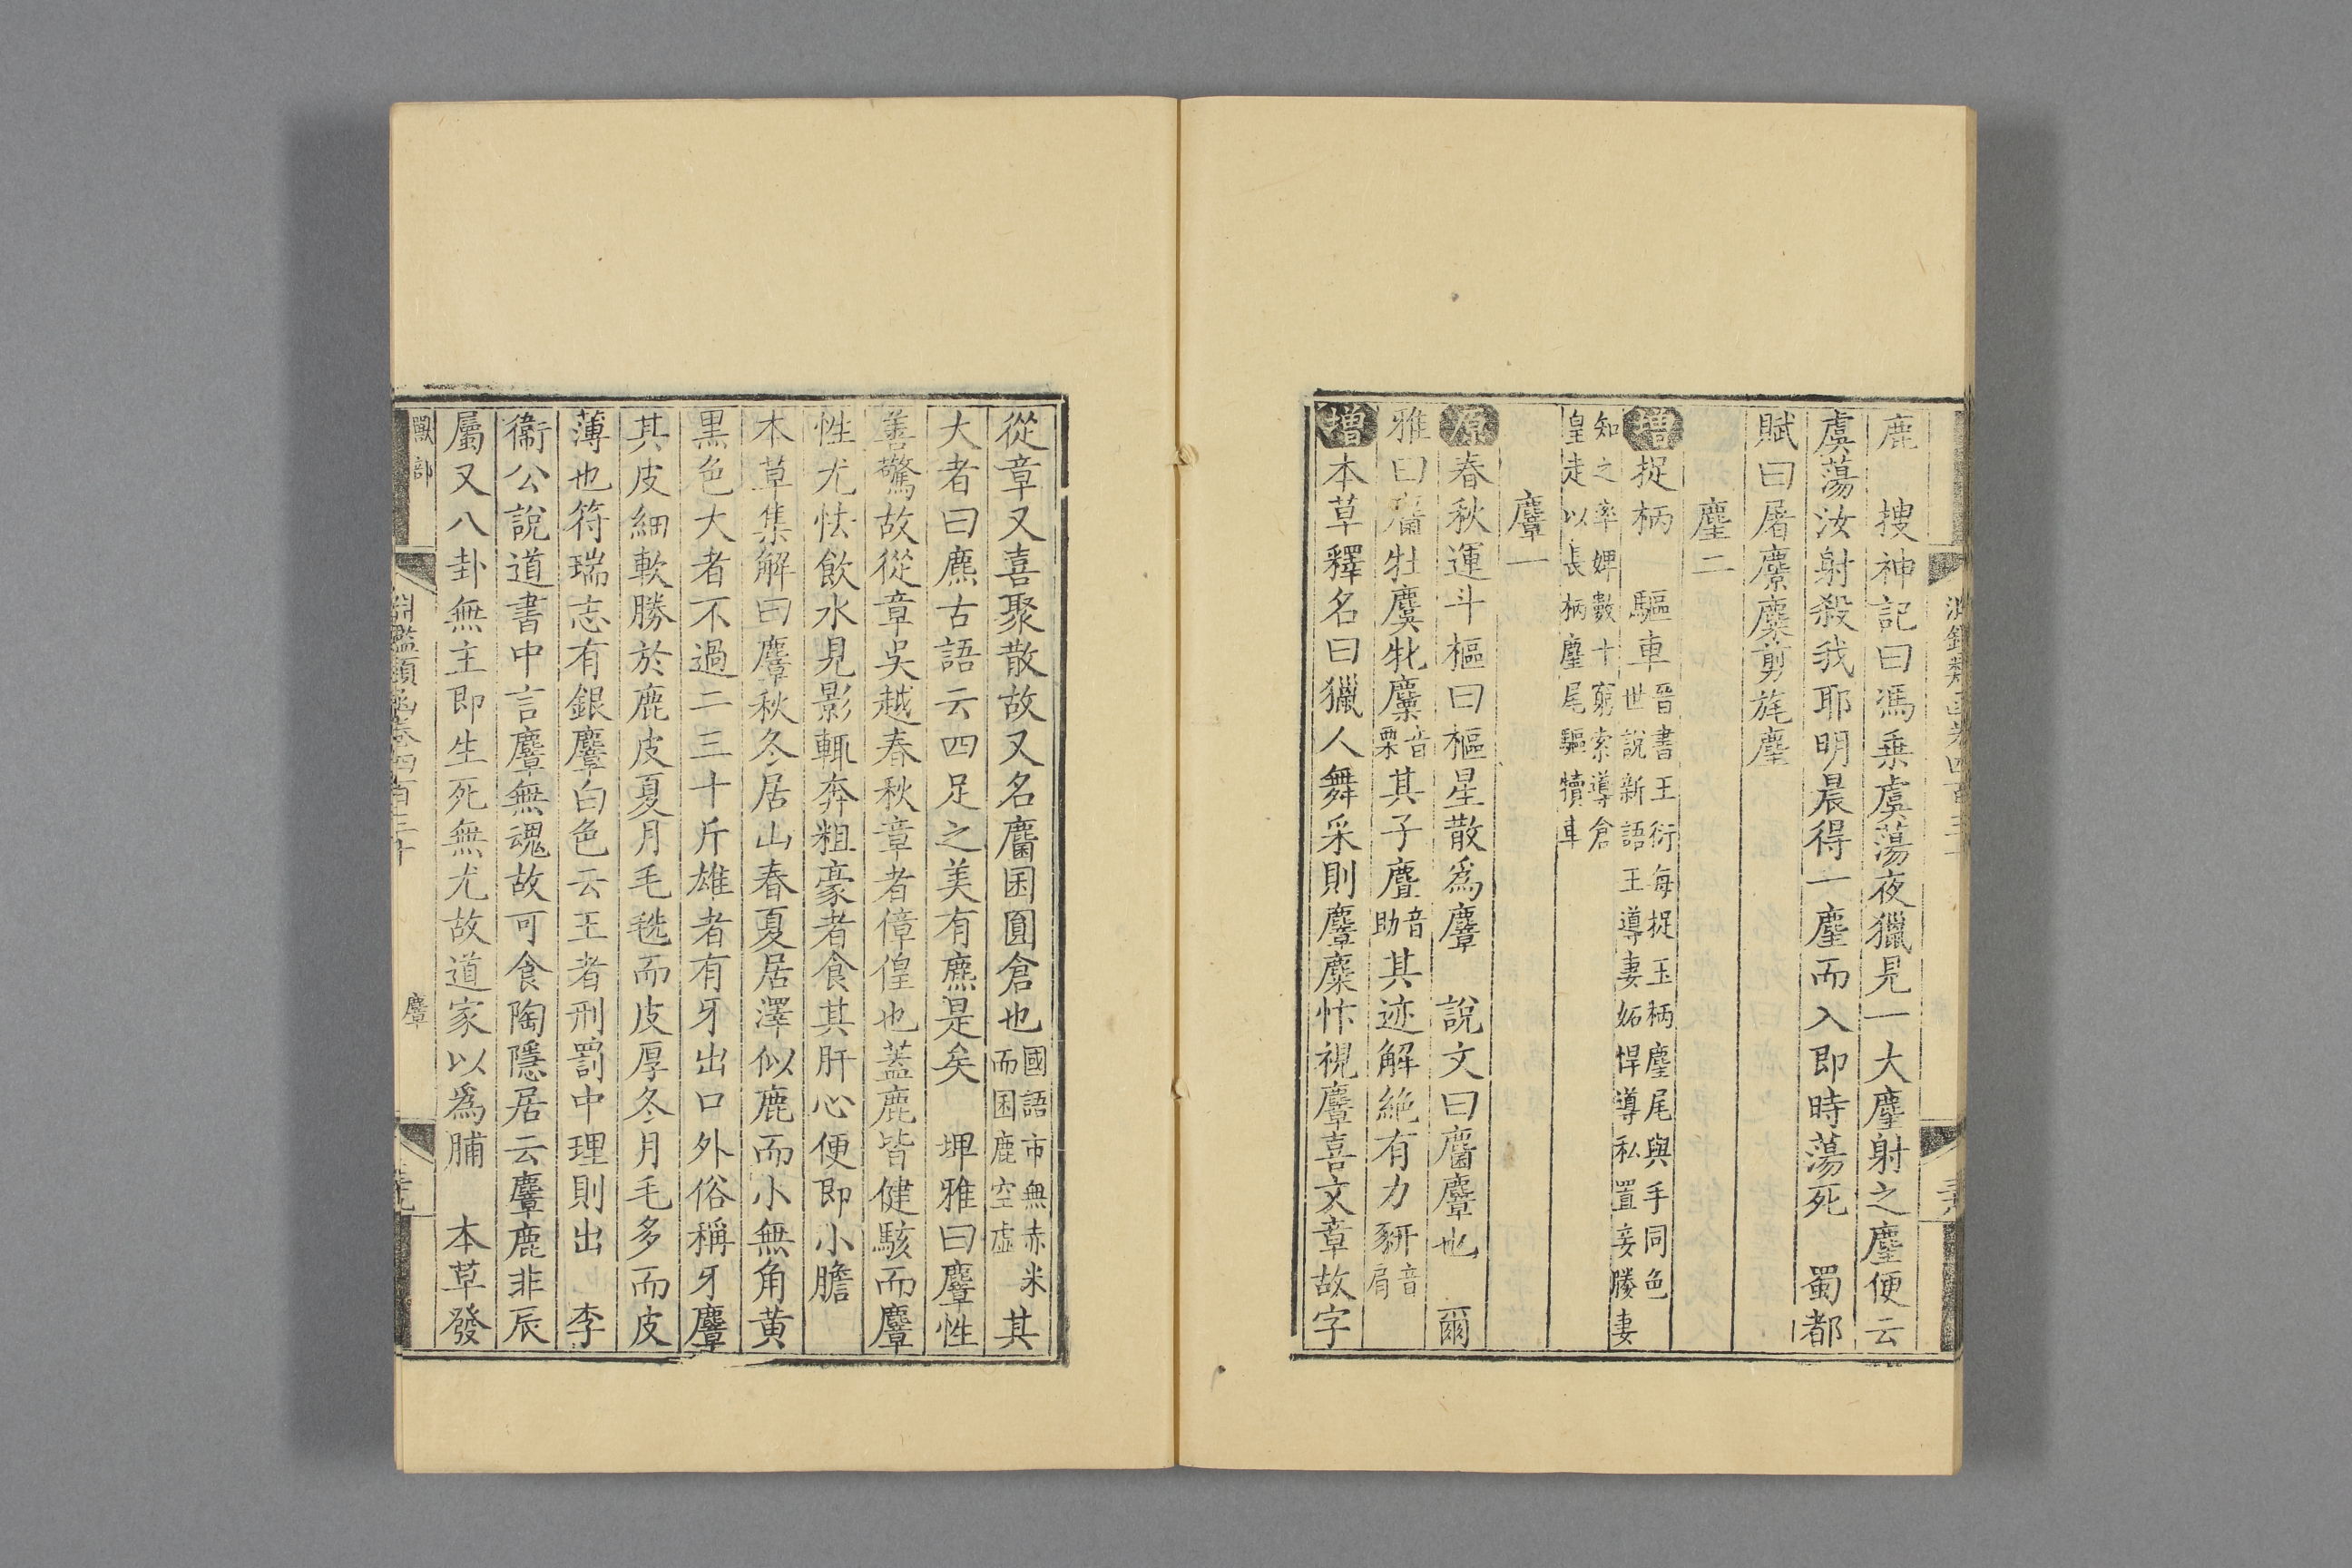 鹿　搜神記曰馮乗虞蕩夜獵見一大麈射之麈便云
虞蕩汝射殺我耶明晨得一麈而入即時蕩死　蜀都
賦曰屠麖麋剪旄麈
麈二
增捉柄　驅車晉書王衍每捉玉柄麈尾與手同色
世說新語王導妻妬悍導私置妾媵妻
知之率婢數十窮索導倉
皇走以長柄麈尾驅犢車
麞一
原春秋運斗樞曰樞星散爲麞　說文曰麕麞也　爾
雅曰麕牡麌牝麜音栗其子麆音助其迹解絶有力豜音肩
增本草釋名曰獵人舞采則麞麋怍視麞喜文章故字
從章又喜聚散故又名麕囷圓倉也國語市無赤米
而囷鹿空虛其
大者曰麃古語云四足之美有麃是矣　埤雅曰麞性
善驚故從章吳越春秋章者傽偟也蓋鹿皆健駭而麞
性尤怯飲水見影輒奔粗豪者食其肝心便即小膽
本草集解曰麞秋冬居山春夏居澤似鹿而小無角黄
黒色大者不過二三十斤雄者有牙出口外俗稱牙麞
其皮細軟勝於鹿皮夏月毛毨而皮厚冬月毛多而皮
薄也符瑞志有銀麞白色云王者刑罰中理則出　李
衞公說道書中言麞無魂故可食陶隱居云麞鹿非辰
屬又八卦無主即生死無尤故道家以爲脯　本草發
獸部
淵鑑類函卷四百三十
麞